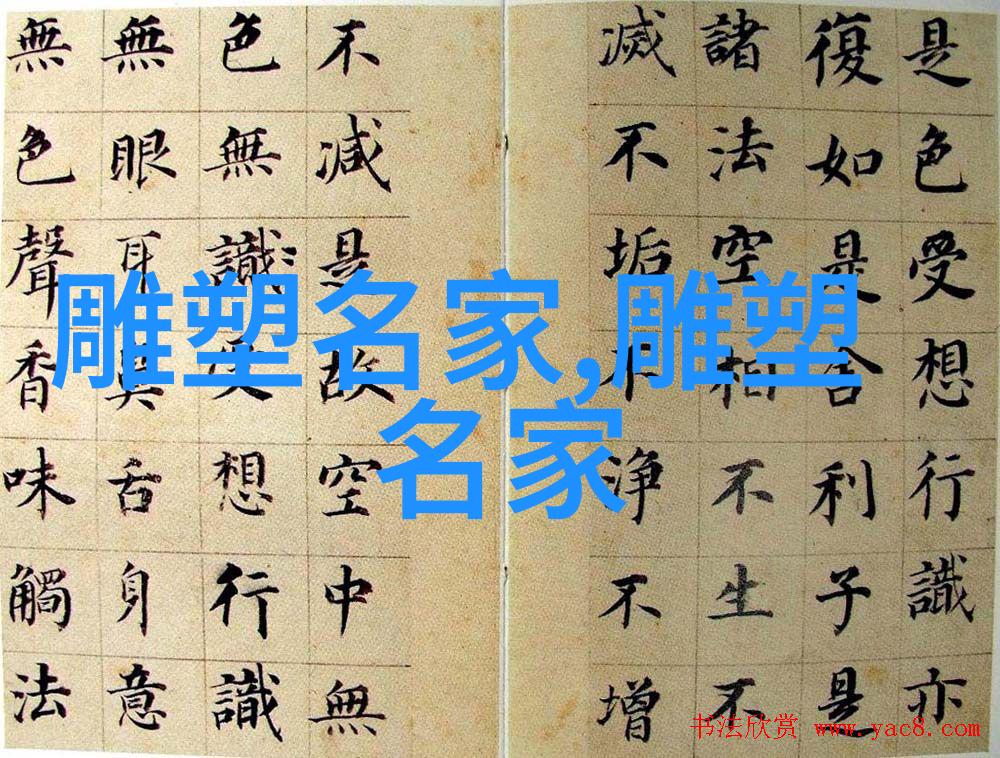 是色受想行識亦
復如是舍利子是
諸法空相不生不
滅不垢不淨不增
不減是故空中無
色無識受想行識
無眼耳鼻舌身意
無色聲香味觸法
雕塑名家,雕塑
名家
书法欣赏 www.yac8.com